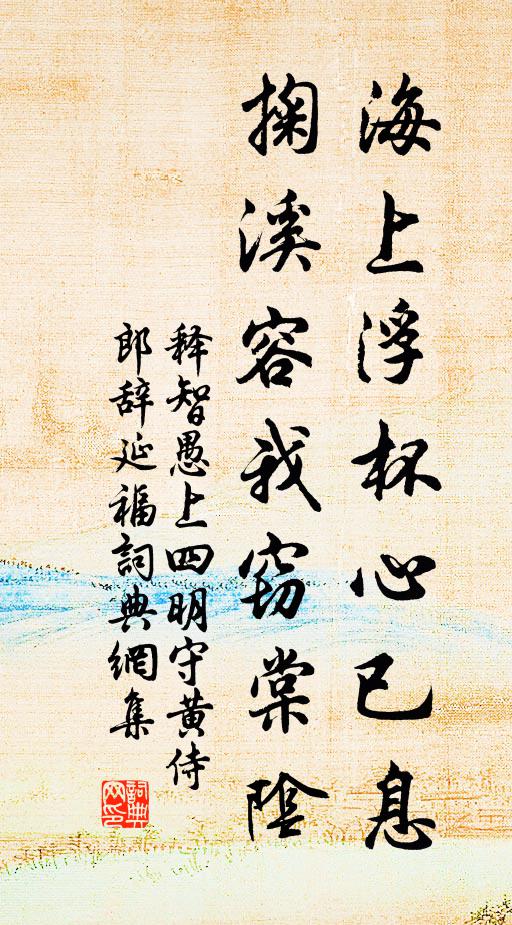 海上浮杯心已息
掬溪容我窃棠陰
释智愚上四明守黄侍
郎辞延福詞典網集
詞典网印